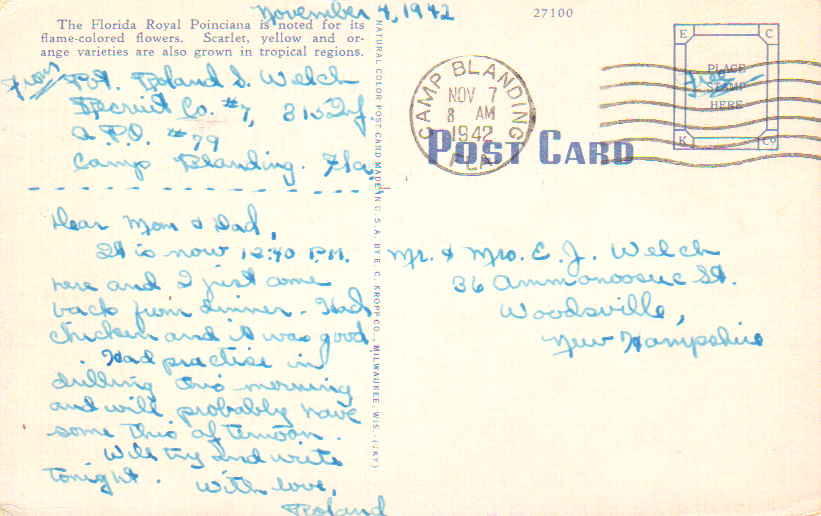 November 4, 1942
The Florida Royal Poinciana is noted for its
flame-colored flowers. Scarlet, yellow and or-
ange varieties are also grown in tropical regions.
27100
From Pvt. Roland S. Welch
Recruit Co. #7, 315 Inf.
A.P.O. #79
Camp Blanding. Fla.
Dear Mom & Dad,
It is now 12:40 P.M.
here and I just came
back from dinner. Had
chicken and it was good
Had practise in
drilling this morning
and will probably have
some this afternoon.
Will try and write
tonight. With love,
Roland
NATURAL COLOR POST CARD MADE IN U.S.A. BY E. C. KROPP CO., MILWAUKEE, WIS.
CAMP BLANDING
NOV 7
8 AM
1942
FLA.
POST CARD
E C
PLACE
STAMP
HERE
K Co
Free
Mr. & Mrs. E. J. Welch
36 Ammonoosuc St.
Woodsville,
New Hampshire